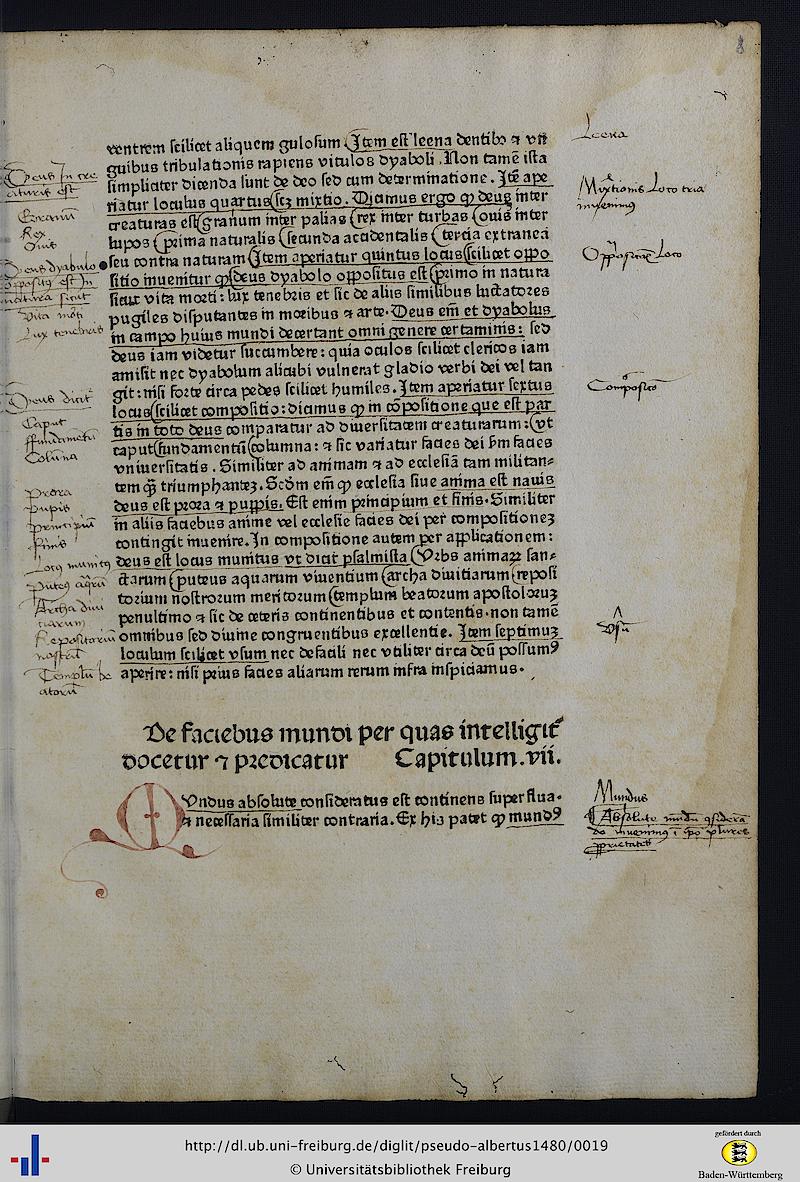 8
ventrem scilicet aliquem gulosum. Item est leena dentibꝰ ⁊ vn
guibus tribulationis rapiens vitulos dyaboli. Non tamē ista
simpliciter dicenda sunt de deo sed cum determinatione. Itē ape
riatur loculus quartus scꝫ mixtio. Dicamus ergo ꝙ deus inter
creaturas est granum inter palias rex inter turbas ouis inter
lupos prima naturalis secunda accidentalis tercia extranea
seu contra naturam Item aperiatur quintus locus scilicet oppo
sitio inuenitur ꝙ deus dyabolo oppositus est primo in natura
sicut vita morti: lux tenebris et sic de aliis similibus luctatores
pugiles disputantes in moribus ⁊ arte. Deus em̄ et dyabolus
in campo huius mundi decertant omni genere certaminis: sed
deus iam videtur succumbere: quia oculos scilicet clericos iam
amisit nec dyabolum alicubi vulnerat gladio verbi dei vel tan
git: nisi forte circa pedes scilicet humiles. Item aperiatur sextus
locus scilicet compositio: dicamus ꝙ in cōpositione que est par
tis in toto deus comparatur ad diuersitatem creaturarum: vt
caput fundamentū columna: ⁊ sic variatur facies dei ẜm facies
vniuersitatis. Similiter ad animam ⁊ ad ecclesiā tam militan⸗
tem ꝙ̄ triumphanteꝫ. Scd̄m em̄ ꝙ ecclesia siue anima est nauis
deus est prora ⁊ puppis. Est enim principium et finis. Similiter
in aliis faciebus anime vel ecclesie facies dei per compositioneꝫ
contingit inuenire. In compositione autem per applicationem:
deus est locus munitus vt dicit psalmista Vrbs animaꝝ san⸗
ctarum puteus aquarum viuentium archa diuitiarum reposi
torium nostrorum meritorum templum beatorum apostoloruꝫ
penultimo ⁊ sic de ceteris continentibus et contentis. non tamē
omnibus sed diuine congruentibus excellentie. Item septimuꝫ
loculum scilicet vsum nec defacili nec vtiliter circa deū possumꝰ
aperire: nisi prius facies aliarum rerum infra inspiciamus.
De faciebus mundi per quas intelligit̄
docetur ⁊ predicatur Capitulum.vii.
Mvndus absolute consideratus est continens superflua⸗
⁊ necessaria similiter contraria. Ex his patet ꝙ mundꝰ
Rex
Ouis
Caput
Colūna
prora
pupis
principiū
finis
Leena
Mundus
http://dl.ub.uni-freiburg.de/diglit/pseudo-albertus1480/0019
© Universitätsbibliothek Freiburg
gefördert durch
Baden-Württemberg